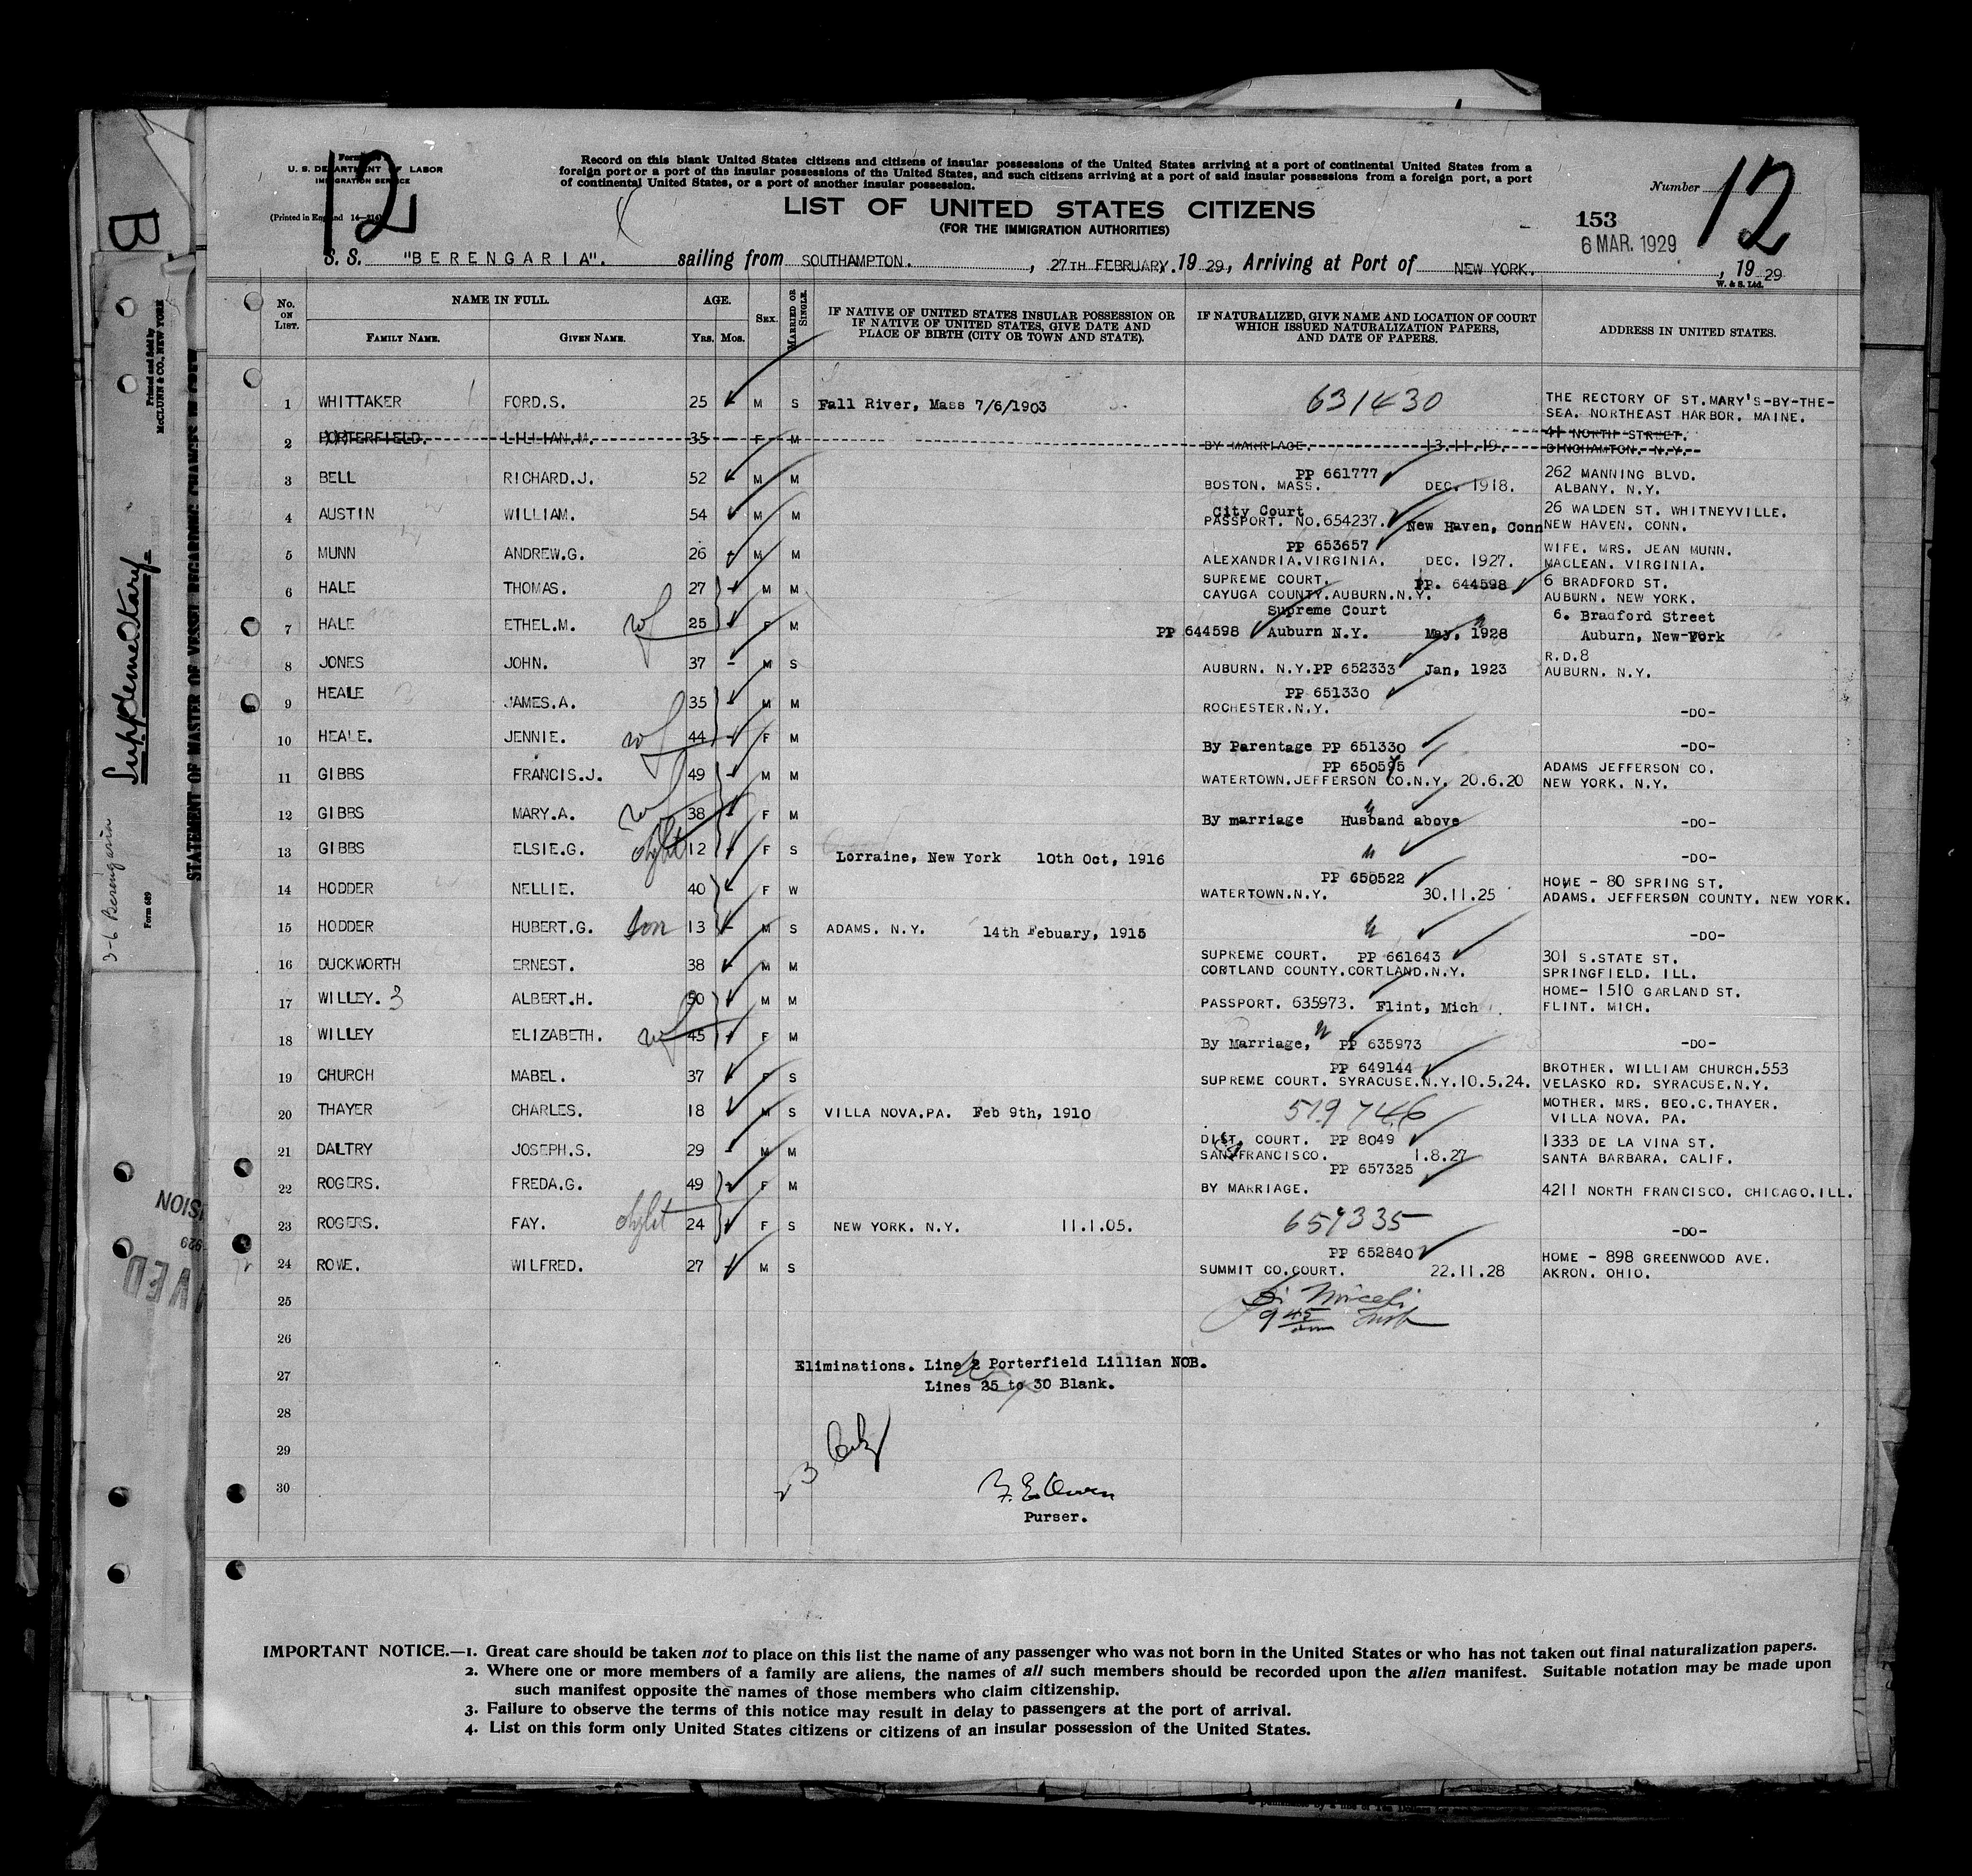 12
Form
U. S. DEPARTMENT OF LABOR
IMMIGRATION SERVICE
(Printed in England 14-
Record on this blank United States citizens and citizens of insular possessions of the United States arriving at a port of continental United States from a
foreign port or a port of the insular possessions of the United States, and such citizens arriving at a port of said insular possessions from a foreign port, a port
of continental United States, or a port of another insular possession.
LIST OF UNITED STATES CITIZENS
(FOR THE IMMIGRATION AUTHORITIES)
Number 12
153
6 MAR. 1929
S. S. "BERENGARIA". sailing from SOUTHAMPTON. , 27TH FEBRUARY. 19 29, Arriving at Port of NEW YORK. , 19 29
W. & S. Ltd.
No. ON LIST. NAME IN FULL. FAMILY NAME. GIVEN NAME. AGE. YRS. MOS. SEX. MARRIED OR SINGLE. IF NATIVE OF UNITED STATES INSULAR POSSESSION OR IF NATIVE OF UNITED STATES, GIVE DATE AND PLACE OF BIRTH (CITY OR TOWN AND STATE). IF NATURALIZED, GIVE NAME AND LOCATION OF COURT WHICH ISSUED NATURALIZATION PAPERS, AND DATE OF PAPERS. ADDRESS IN UNITED STATES.
1 WHITTAKER FORD.S. 25 M S Fall River, Mass 7/6/1903 631430 THE RECTORY OF ST.MARY'S-BY-THE-
SEA. NORTHEAST HARBOR. MAINE.
2 PORTERFIELD. LILLIAN.M. 35 - F M BY MARRIAGE. 13.11.19. 41 NORTH STREET.
BINGHAMTON. N.Y.
3 BELL RICHARD.J. 52 M M PP 661777 262 MANNING BLVD.
BOSTON. MASS. DEC. 1918. ALBANY. N.Y.
4 AUSTIN WILLIAM. 54 M M City Court 26 WALDEN ST. WHITNEYVILLE.
PASSPORT. NO.654237. New Haven, Conn NEW HAVEN. CONN.
5 MUNN ANDREW.G. 26 M M PP 653657 WIFE. MRS. JEAN MUNN.
ALEXANDRIA.VIRGINIA. DEC. 1927. MACLEAN. VIRGINIA.
6 HALE THOMAS. 27 M M SUPREME COURT. PP. 644598 6 BRADFORD ST.
CAYUGA COUNTY.AUBURN.N.Y. AUBURN. NEW YORK.
7 HALE ETHEL.M. wf 25 F M Supreme Court 6. Bradford Street
PP 644598 Auburn N.Y. May, 1928 Auburn, New-York
8 JONES JOHN. 37 - M S R.D.8
AUBURN. N.Y. PP 652333 Jan, 1923 AUBURN. N.Y.
9 HEALE JAMES.A. 35 M M PP 651330
ROCHESTER.N.Y. -DO-
10 HEALE. JENNIE. wf 44 F M By Parentage PP 651330 -DO-
11 GIBBS FRANCIS.J. 49 M M PP 650595 ADAMS JEFFERSON CO.
WATERTOWN.JEFFERSON CO.N.Y. 20.6.20 NEW YORK. N.Y.
12 GIBBS MARY.A. wf 38 F M By marriage " Husband above -DO-
13 GIBBS ELSIE.G. dght 12 F S Lorraine, New York 10th Oct, 1916 " -DO-
14 HODDER NELLIE. 40 F W PP 650522 HOME - 80 SPRING ST.
WATERTOWN.N.Y. 30.11.25 ADAMS. JEFFERSON COUNTY. NEW YORK.
15 HODDER HUBERT.G. son 13 M S ADAMS. N.Y. 14th Febuary, 1915 " -DO-
16 DUCKWORTH ERNEST. 38 M M SUPREME COURT. PP 661643 301 S.STATE ST.
CORTLAND COUNTY.CORTLAND.N.Y. SPRINGFIELD. ILL.
17 WILLEY. 3 ALBERT.H. 50 M M PASSPORT. 635973. Flint, Mich HOME- 1510 GARLAND ST.
FLINT. MICH.
18 WILLEY ELIZABETH. wf 45 F M By Marriage, " PP 635973 -DO-
19 CHURCH MABEL. 37 F S PP 649144 BROTHER. WILLIAM CHURCH.553
SUPREME COURT. SYRACUSE.N.Y.10.5.24. VELASKO RD. SYRACUSE.N.Y.
20 THAYER CHARLES. 18 M S VILLA NOVA.PA. Feb 9th, 1910 519746 MOTHER. MRS. GEO.C.THAYER.
VILLA NOVA. PA.
21 DALTRY JOSEPH.S. 29 - M M DIST. COURT. PP 8049 1333 DE LA VINA ST.
SAN FRANCISCO. 1.8.27 SANTA BARBARA. CALIF.
22 ROGERS. FREDA.G. 49 F M PP 657325
BY MARRIAGE. 4211 NORTH FRANCISCO. CHICAGO.ILL.
23 ROGERS. FAY. dght 24 F S NEW YORK. N.Y. 11.1.05. 657335 -DO-
24 ROWE. WILFRED. 27 M S PP 652840 HOME - 898 GREENWOOD AVE.
SUMMIT CO.COURT. 22.11.28 AKRON. OHIO.
25
9 45
am
26
27 Eliminations. Line 2 Porterfield Lillian NOB.
Lines 25 to 30 Blank.
28
29
23
30
Purser.
IMPORTANT NOTICE.—1. Great care should be taken not to place on this list the name of any passenger who was not born in the United States or who has not taken out final naturalization papers.
2. Where one or more members of a family are aliens, the names of all such members should be recorded upon the alien manifest. Suitable notation may be made upon
such manifest opposite the names of those members who claim citizenship.
3. Failure to observe the terms of this notice may result in delay to passengers at the port of arrival.
4. List on this form only United States citizens or citizens of an insular possession of the United States.
B
Supplementary
3-6 Berengaria
Form 689
Printed and Sold by
McCLUNN & CO., NEW YORK
STATEMENT OF MASTER OF VESSEL REGARDING CHANGES IN CREW